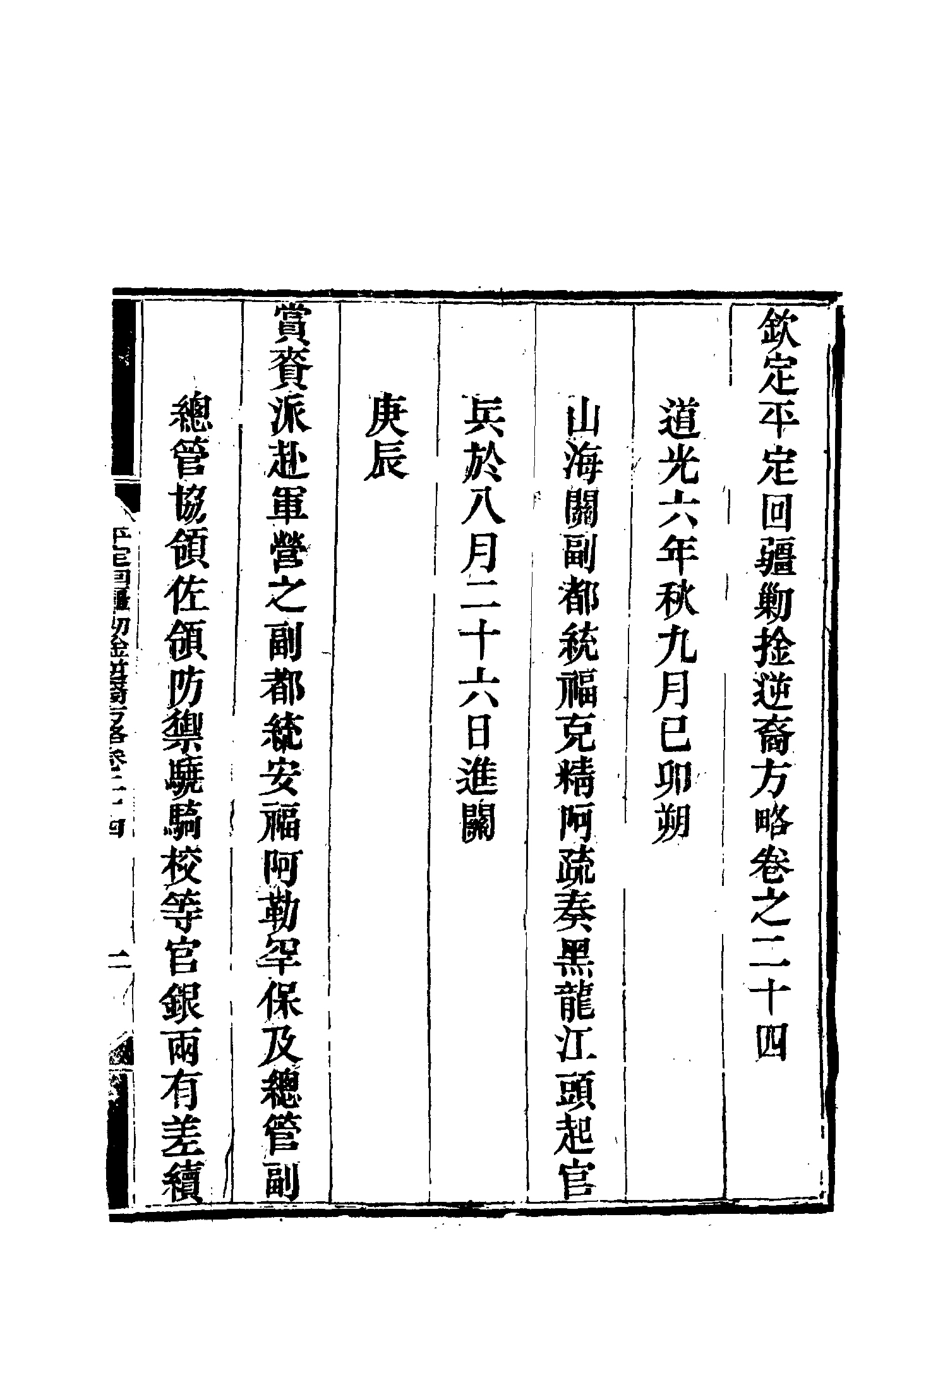 欽定平定回疆勦捦逆裔方略卷之二十四
道光六年秋九月己卯朔
山海關副都統福克精阿疏奏黑龍江頭起官
兵於八月二十六日進關
庚辰
賞賚派赴軍營之副都統安福阿勒罕保及總管副
總管協領佐領防禦驍騎校等官銀兩有差續
平定回疆勦捦逆裔方略卷二十四